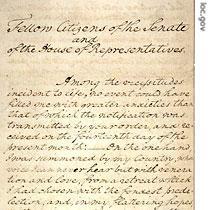 loc.gov
Fellow Citizens of the Senate
and
of the House of Representatives.
Among the vicissitudes
incident to life, no event could have
filled me with greater anxieties than
that of which the notification was
transmitted by your order, and re
ceived on the fourteenth day of the
present month: — On the one hand,
I was summoned by my Country, whose
voice I can never hear but with venera
tion and love, from a retreat which
I had chosen with the fondest predi
lection, and, in my flattering hopes